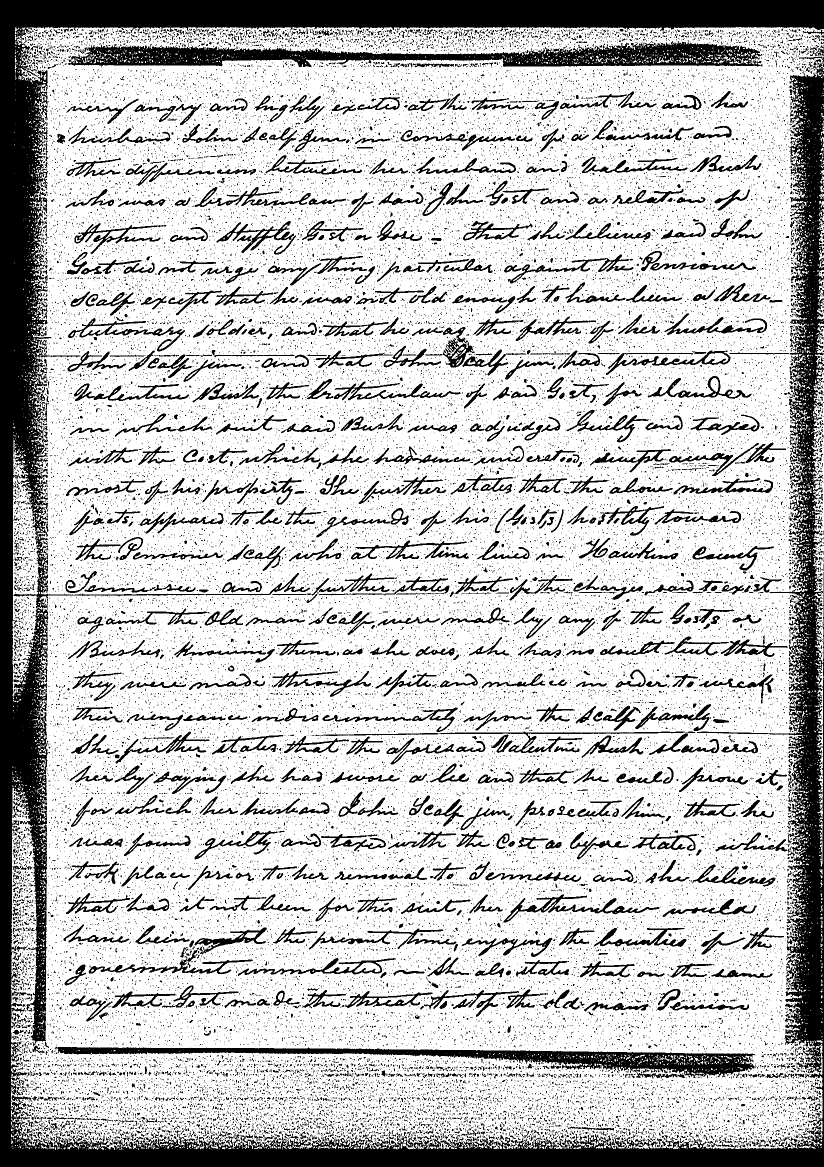 verry angry and highly excited at the time against her and her
husband John Scalf jun. in consequence of a lawsuit and
other differences between her husband and Valentine Bush
who was a brotherinlaw of said John Gost and a relation of
Stephen and Stuffley Gost or Gose – That she believes said John
Gost did not urge any thing particular against the Pensioner
Scalf except that he was not old enough to have been a Rev–
olutionary soldier, and that he was the father of her husband
John Scalf jun. and that John Scalf jun. had prosecuted
Valentine Bush, the brotherinlaw of said Gost, for slander
in which suit said Bush was adjudged Guilty and taxed
with the Cost, which, she has since understood, swept away the
most of his property – She further states that the above mentioned
facts, appeared to be the grounds of his (Gosts) hostility toward
the Pensioner Scalf who at the time lived in Hawkins County
Tennessee – and she further states, that if the charges, said to exist
against the Old man Scalf, were made by any of the Gosts or
Bushes, knowing them as she does, she has no doubt but that
they were made through spite and malice in order to wreak
their vengeance indiscriminately upon the Scalf family –
She further states that the aforesaid Valentine Bush slandered
her by saying she had swore a lie and that he could prove it,
for which her husband John Scalf jun, prosecuted him, that he
was found guilty and taxed with the Cost as before stated, which
took place prior to her removal to Tennessee and she believes
that had it not been for this suit, her fatherinlaw would
have been, until the present time, enjoying the bounties of the
government unmolested, – She also states that on the same
day, that Gost made the threat, to stop the old mans Pension